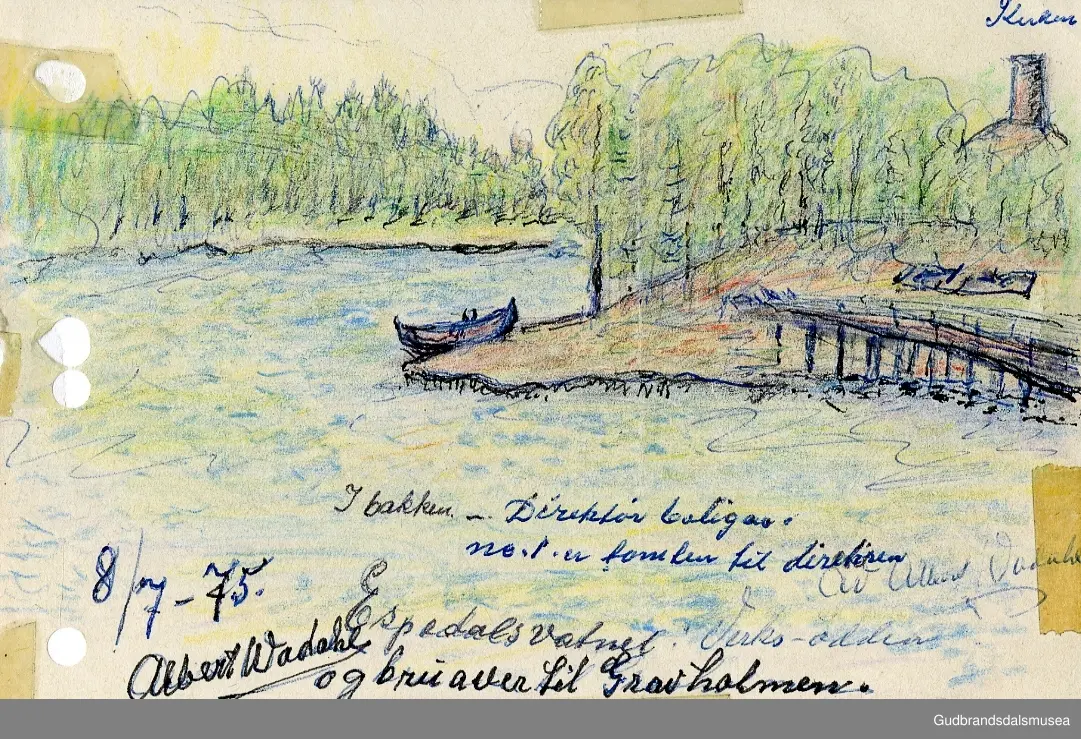 Kirken
I bakken — Direktør boligav.
no. 1. er tomten til direktren
8/7 - 75.
Av Albert Wadahl
Espedalsvatnet. Verks-odden
Albert Wadahl
og bru over til Gravholmen.
Gudbrandsdalsmusea